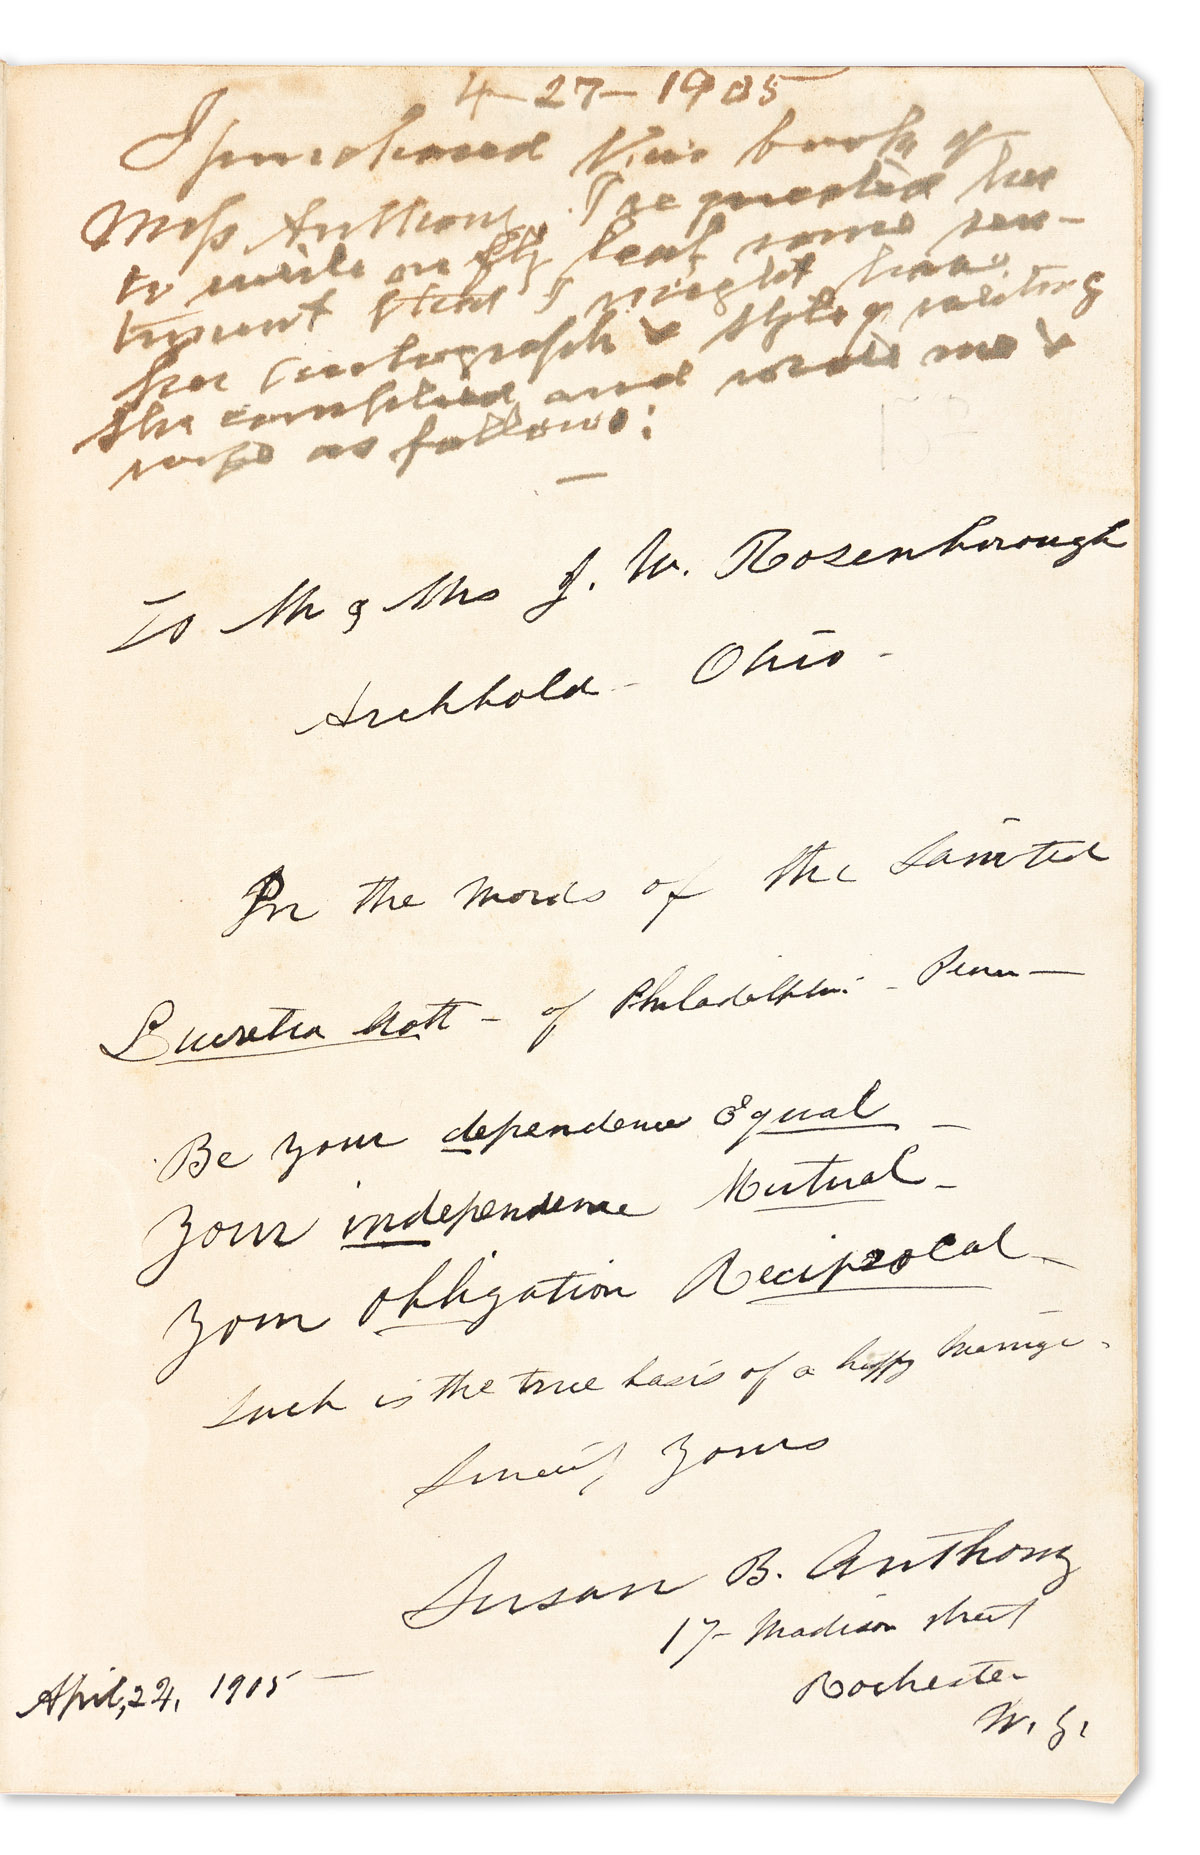 4-27-1905
I purchased this book of
Miss Anthony. I requested her
to write on fly leaf some sen-
timent that I might have
her autograph & style of writing
She complied and wrote me &
wife as follows:
—
To Mr & Mrs J. W. Rosenborough
Archbold - Ohio -
In the words of the Sainted
Lucretia Mott - of Philadelphia - Penn —
Be your dependence Equal -
Your independence Mutual -
Your obligation Reciprocal -
Such is the true basis of a happy marriage -
Sincerely Yours
Susan B. Anthony
17 - Madison street
Rochester
April, 24, 1905 —
N. Y.